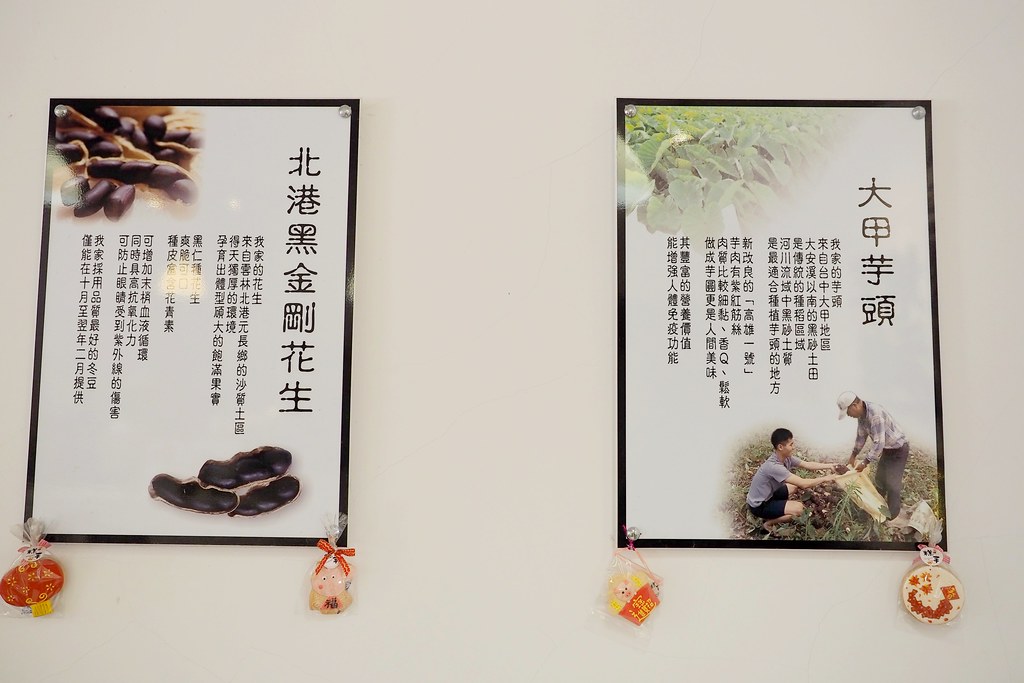 北港黑金剛花生
我家的花生
來自雲林北港元長鄉的沙質土區
得天獨厚的環境
孕育出體型碩大的飽滿果實
黑仁種花生
爽脆可口
種皮富含花青素
可增加末梢血液循環
同時具高抗氧化力
可防止眼睛受到紫外線的傷害
我家採用品質最好的冬豆
僅能在十月至翌年二月提供
福
大甲芋頭
我家的芋頭
來自台中大甲地區
大安溪以南的黑砂土田
是傳統的種稻區域
河川流域中黑砂土質
是最適合種植芋頭的地方
新改良的「高雄一號」
芋肉有紫紅筋絲
肉質比較細黏、香Q、鬆軟
做成芋圓更是人間美味
其豐富的營養價值
能增强人體免疫功能